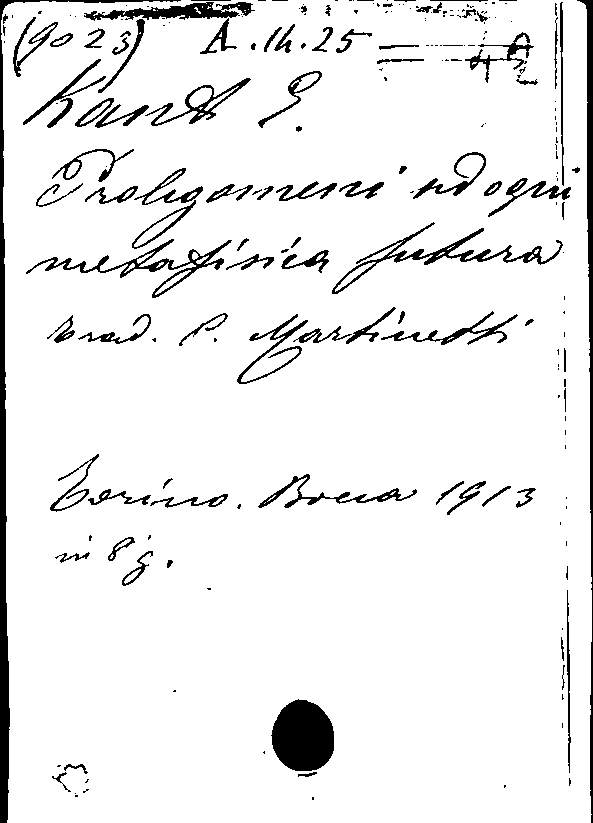 (9023) A.14.25 42
Kant E.
Prolegomeni ad ogni
metafisica futura
trad. P. Martinetti
Torino. Bocca 1913
in 8° g.